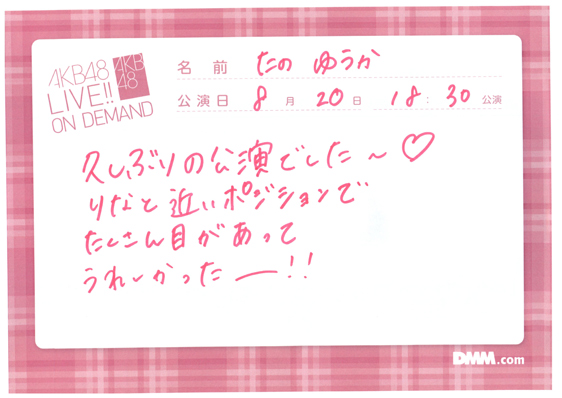 AKB48
LIVE!!
ON DEMAND
AKB
48
名前 たの ゆうか
公演日 8月20日 18:30公演
久しぶりの公演でした〜♡
りなと近いポジションで
たくさん目があって
うれしかったー!!
DMM.com